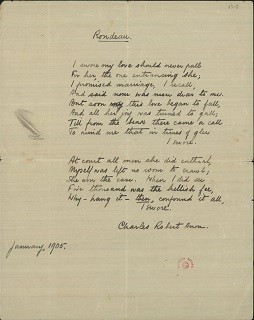 Rondeau.
I swore my love should never pall
For her, the one entrancing she,
I promised marriage, I recall,
And said none was more dear to me.
But soon my this love began to fall,
And all her joy was turned to gall;
Till from the there came a call
To mind me that in times of glee
I swore.
At court all men she did enthral,
Myself was left no room to crawl;
She won the case. When I did see
Five thousand was the hellish fee,
Why - hang it - then, confound it all,
I swore.
Charles Robert Anon.
January, 1905.